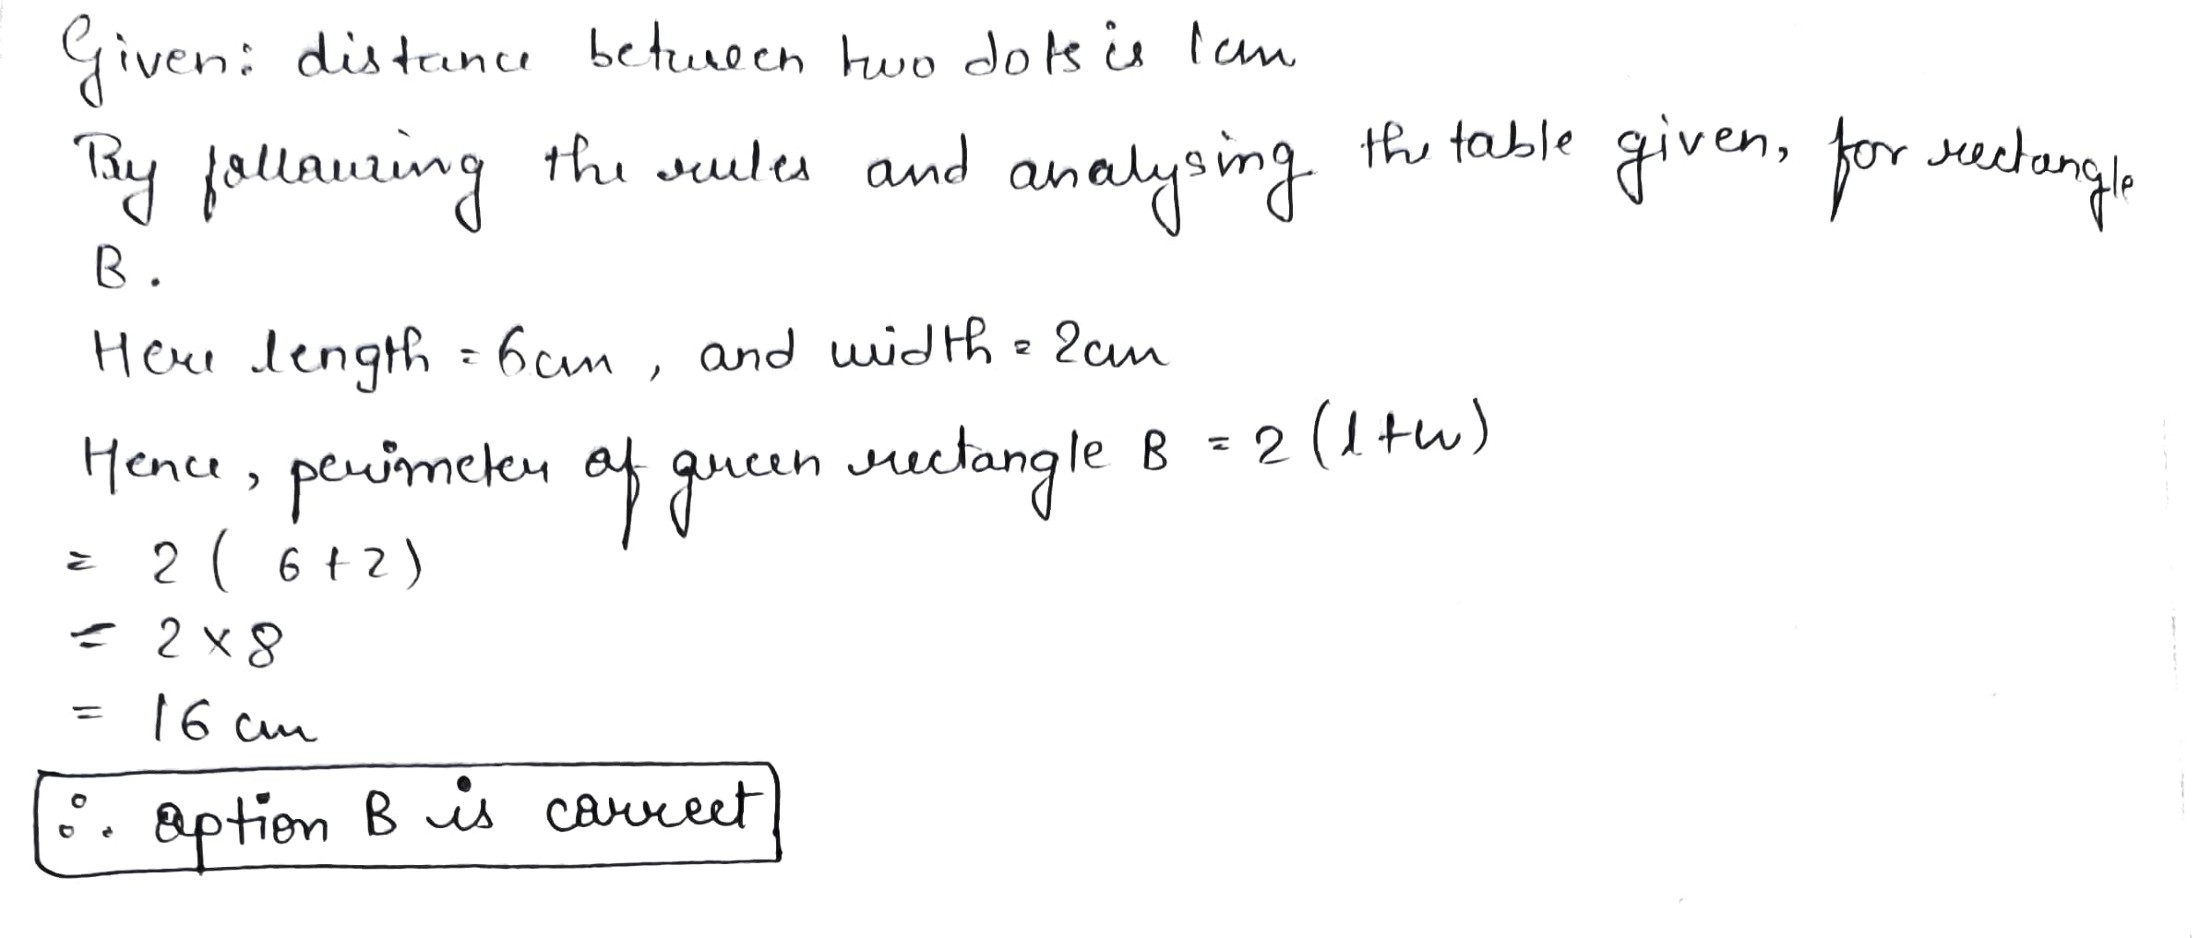 Given: distance between two dots is 1cm
By following the rules and analysing the table given, for rectangle
B.
Here length = 6cm, and width = 2cm
Hence, perimeter of green rectangle B = 2(l+w)
= 2( 6+2)
= 2×8
= 16 cm
∴ option B is correct